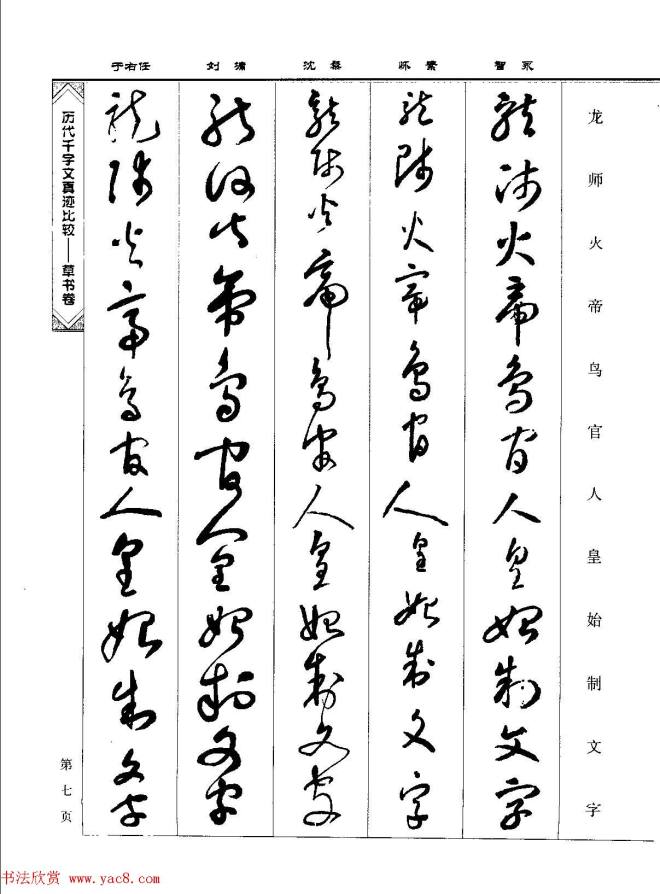 智永
怀素
沈粲
刘
于右任
龙师火帝鸟官人皇始制文字
龍師火帝鳥官人皇始制文字
龍師火帝鳥官人皇始制文字
龍師火帝鳥官人皇始制文字
龍師火帝鳥官人皇始制文字
龍師火帝鳥官人皇始制文字
历代千字文真迹比较——草书卷
第七页
书法欣赏 www.yac8.com